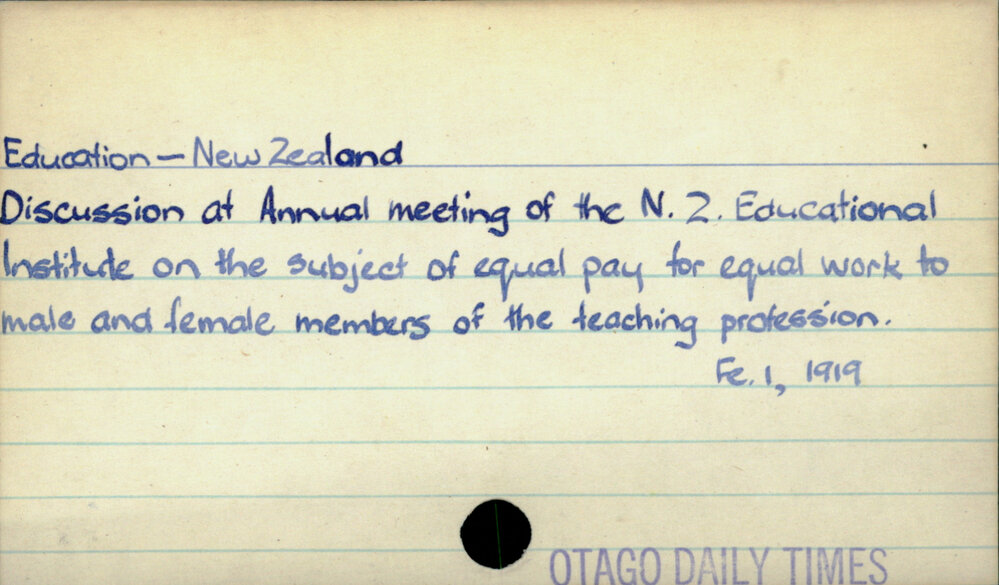 Education - New Zealand
Discussion at Annual meeting of the N. Z. Educational
Institute on the subject of equal pay for equal work to
male and female members of the teaching profession.
Fe. 1, 1919
OTAGO DAILY TIMES